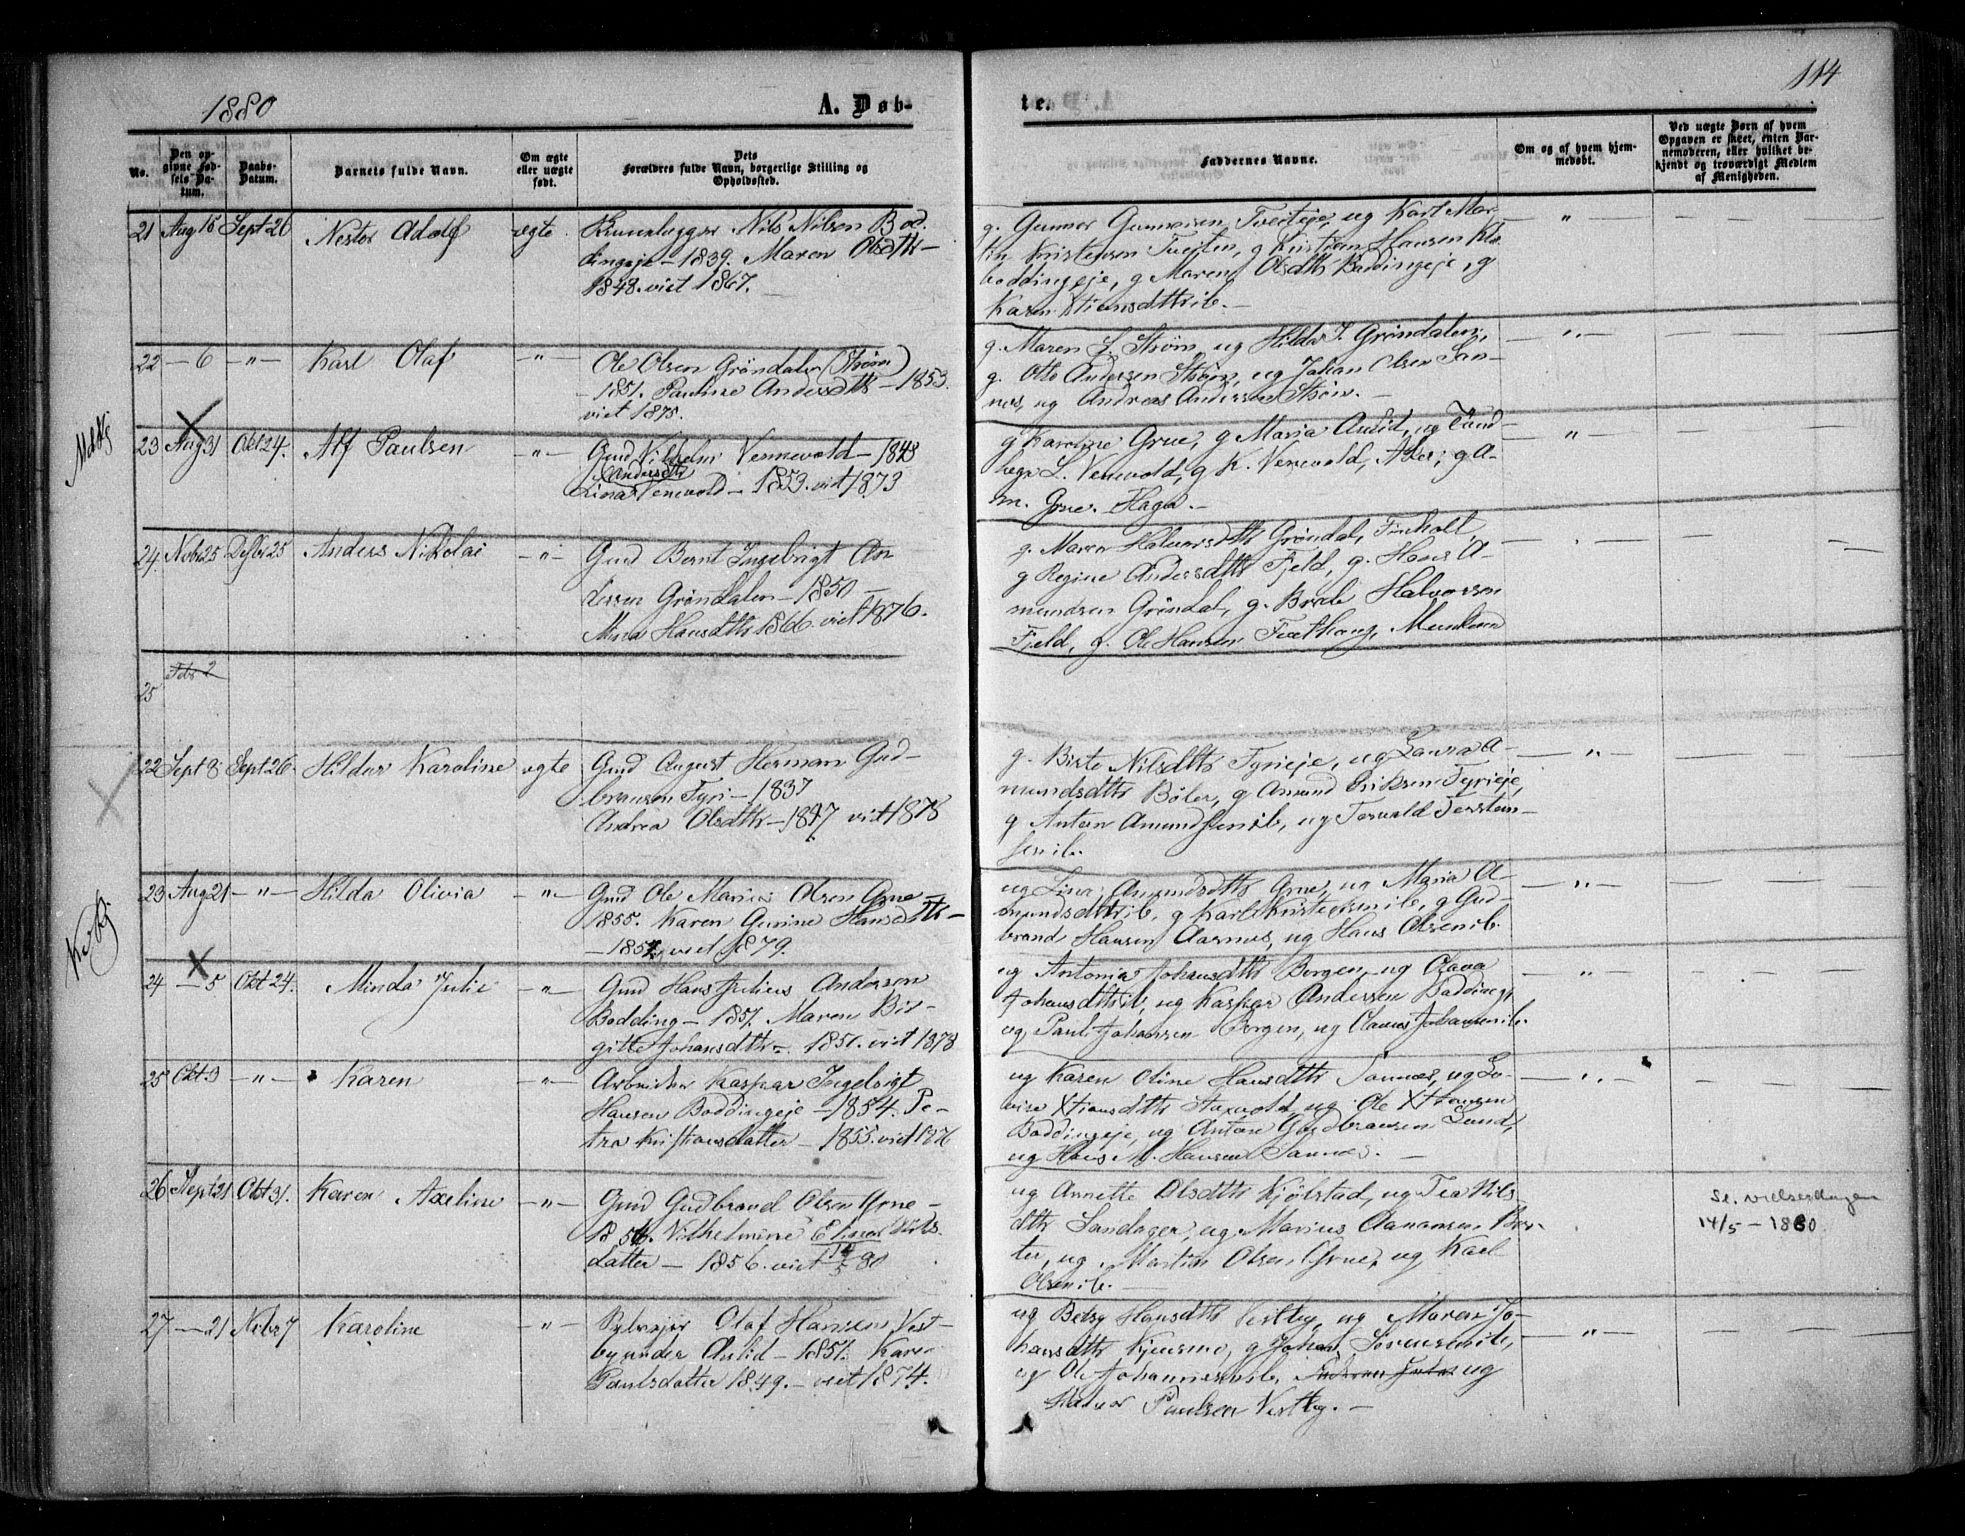 1880
A. Døb-
te.
114
No.
Den opgivne Fødsels Datum.
Daabs-Datum.
Barnets fulde Navn.
Om ægte eller uægte født.
Dets Forældres fulde Navn, borgerlige Stilling og Opholdssted.
Faddernes Navne.
Om og af hvem hjemmedøbt.
Ved uægte Børn af hvem Opgaven er skeet, enten Barnemoderen, eller hvilket bekjendt og troværdigt Medlem af Menigheden.
21 Aug 15 Sept 26 Nestor Adolf ægte Nils Nilsen Bod-
dingeje – 1839. Maren Olsdth –
1848. viet 1867.
g. Gunnar Gunnarsen Tveiteje, ug Karl Mar-
tin Kristensen Tveiten, g Kristian Hansen
boddingeje, g Maren Olsdth Boddingeje, g
Karen Xtiansdth ib. –
22 – 6 – " – Karl Olaf – " – Ole Olsen Grøndalen (Strøm)
– 1851. Pauline Andersdth – 1853.
viet 1875.
g. Maren L. Strøm, ug Hilda J. Grøndalen,
g. Otto Andersen Strøm, ug Johan Olsen San-
nes, ug Andreas Andersen Strøm. –
23 Aug 31 Okt 24. Alf Paulsen – " – Gmd Vilhelm Vennevold – 1848
Andersdth
Lina Venevold – 1853. viet 1873
g Karoline Grue, g Maria Aulid, ug
L. Venevold, g K. Venevold, Aker, g A-
m. Grue. Haga. –
24. Nvbr 25 Dcbr 25 Anders Nikolai – " – Gmd Bernt Ingebrigt An-
dersen Grøndalen – 1850 –
Mina Hansdth 1866. viet 1876.
g. Maren Halvorsdth Grøndal, Finholt,
g Regine Andersdth Fjeld, g. Hans A-
mundsen Grøndal, g. Brede Halvorsen
Fjeld, g. Ole Hansen
25 Feb 2
22 Sept 8 Sept 26 Hildur Karoline ægte Gmd August Herman Gud-
bransen Tyri – 1837
Andrea Olsdth – 1847 viet 1875
g. Birte Nilsdth Tyrieje, ug Laura A-
mundsdth Bøler, g Amund Eriksen Tyrieje,
g Anton Amundsen ib, ug Torvald Torstein-
sen ib.
23 Aug 21 – " – Hilda Olivia – " – Gmd Ole Marius Olsen Grue –
1855. Karen Gunine Hansdth –
– 1857, viet 1879.
ug Lina Amundsdth Grue, ug Maria A-
mundsdth ib, g Karl Kristensen ib, g Gud-
brand Hansen Aarnes, ug Hans Olsen ib.
24 – 5 Okt 24. Minda Julie – " – Gmd Hans Julius Andersen
Bodding – 1851. Maren Bir-
gitte Johansdth – 1851. viet 1878
ug Antonia Johansdth Borgen, ug Olava
Johansdth ib, ug Kaspar Andersen Bodding,
ug Paul Johansen Borgen, ug Claus Johansen ib.
25 Okt. 3 – " – Karen – " – Arbeider Kaspar Ingebrigt
Hansen Boddingeje – 1854. Pe-
tra Kristiansdatter – 1855. viet 1876
ug Karen Oline Hansdth Sannes, ug Lo-
vise Xtiansdth ug Ole X Hansen
Boddingeje, ug Anton Gudbransen Sand,
ug Hans M. Hansen Sannes. –
26 Sept 21 Okt 31. Karen Axeline – " – Gmd Gudbrand Olsen Grue –
1856. Vilhelmine Elinor Nils-
datter – 1856. viet 14/5 80
ug Annette Olsdth Kjølstad, ug Tea Nils-
dth Sandager, ug Marius Aanansen
ug Martin Olsen Grue, ug Karl
Olsen ib. –
Se. vielsesdagen
14/5 – 1880.
27 – 21 Nvbr 7 Karoline – " – Olaf Hansen Vest-
by under Aulid – 1851. Karen
Paulsdatter 1849. – viet 1874.
ug Betsy Hansdth Vestby, ug Maren Jo-
hansdth Kjensmo, g Johan Sørensen ib,
ug Ole Johannesen ib, ug
Paulsen Vestby. –